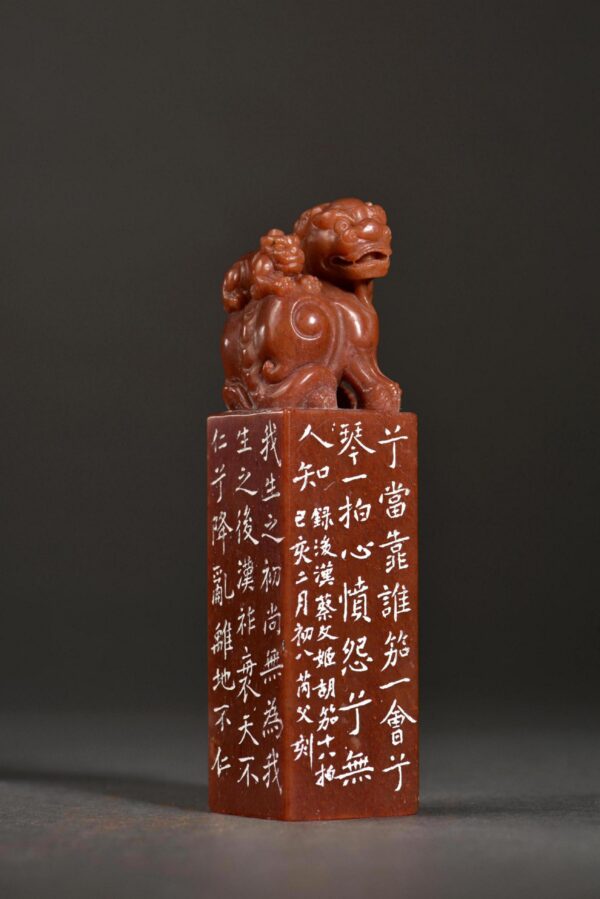 我生之初尚無為我
生之後漢祚衰天不
仁兮降亂離地不仁
兮當靠誰笳一會兮
琴一拍心憤怨兮無
人知
錄後漢蔡文姬胡笳十八拍
己亥二月初八芮父刻